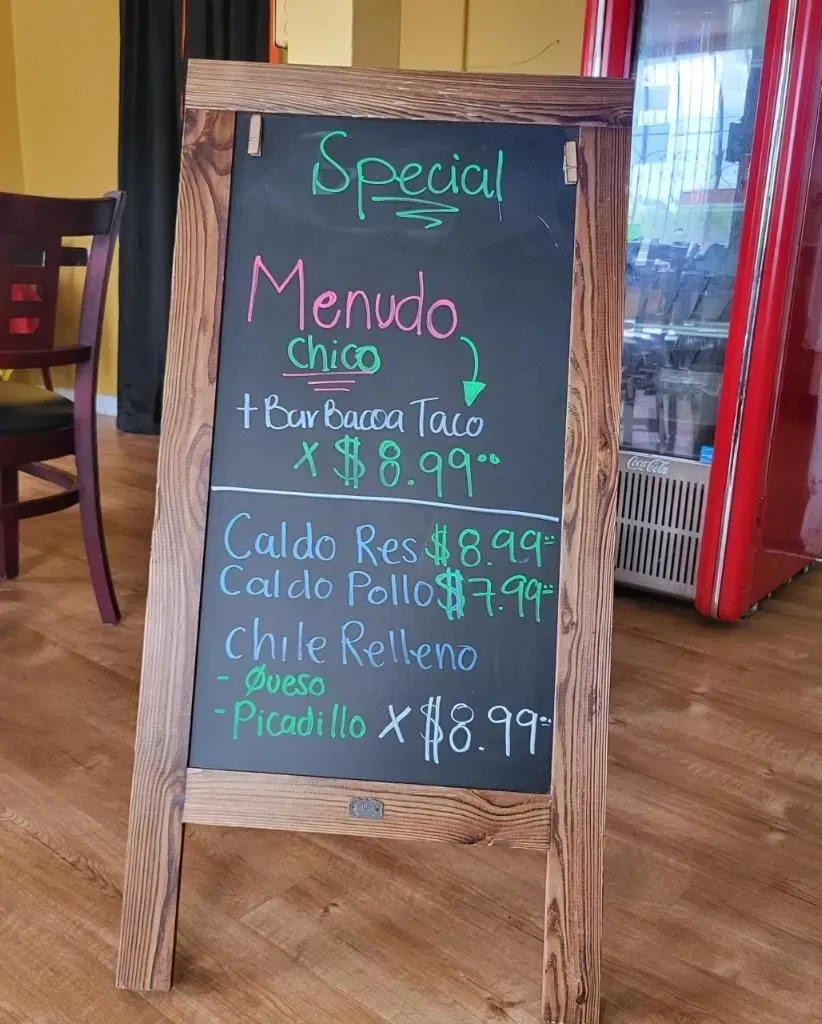 Special
Menudo
Chico
+ BarBacoa Taco
x $8.99
Caldo Res $8.99
Caldo Pollo $7.99
Chile Relleno
- Queso
- Picadillo x $8.99
Coca-Cola